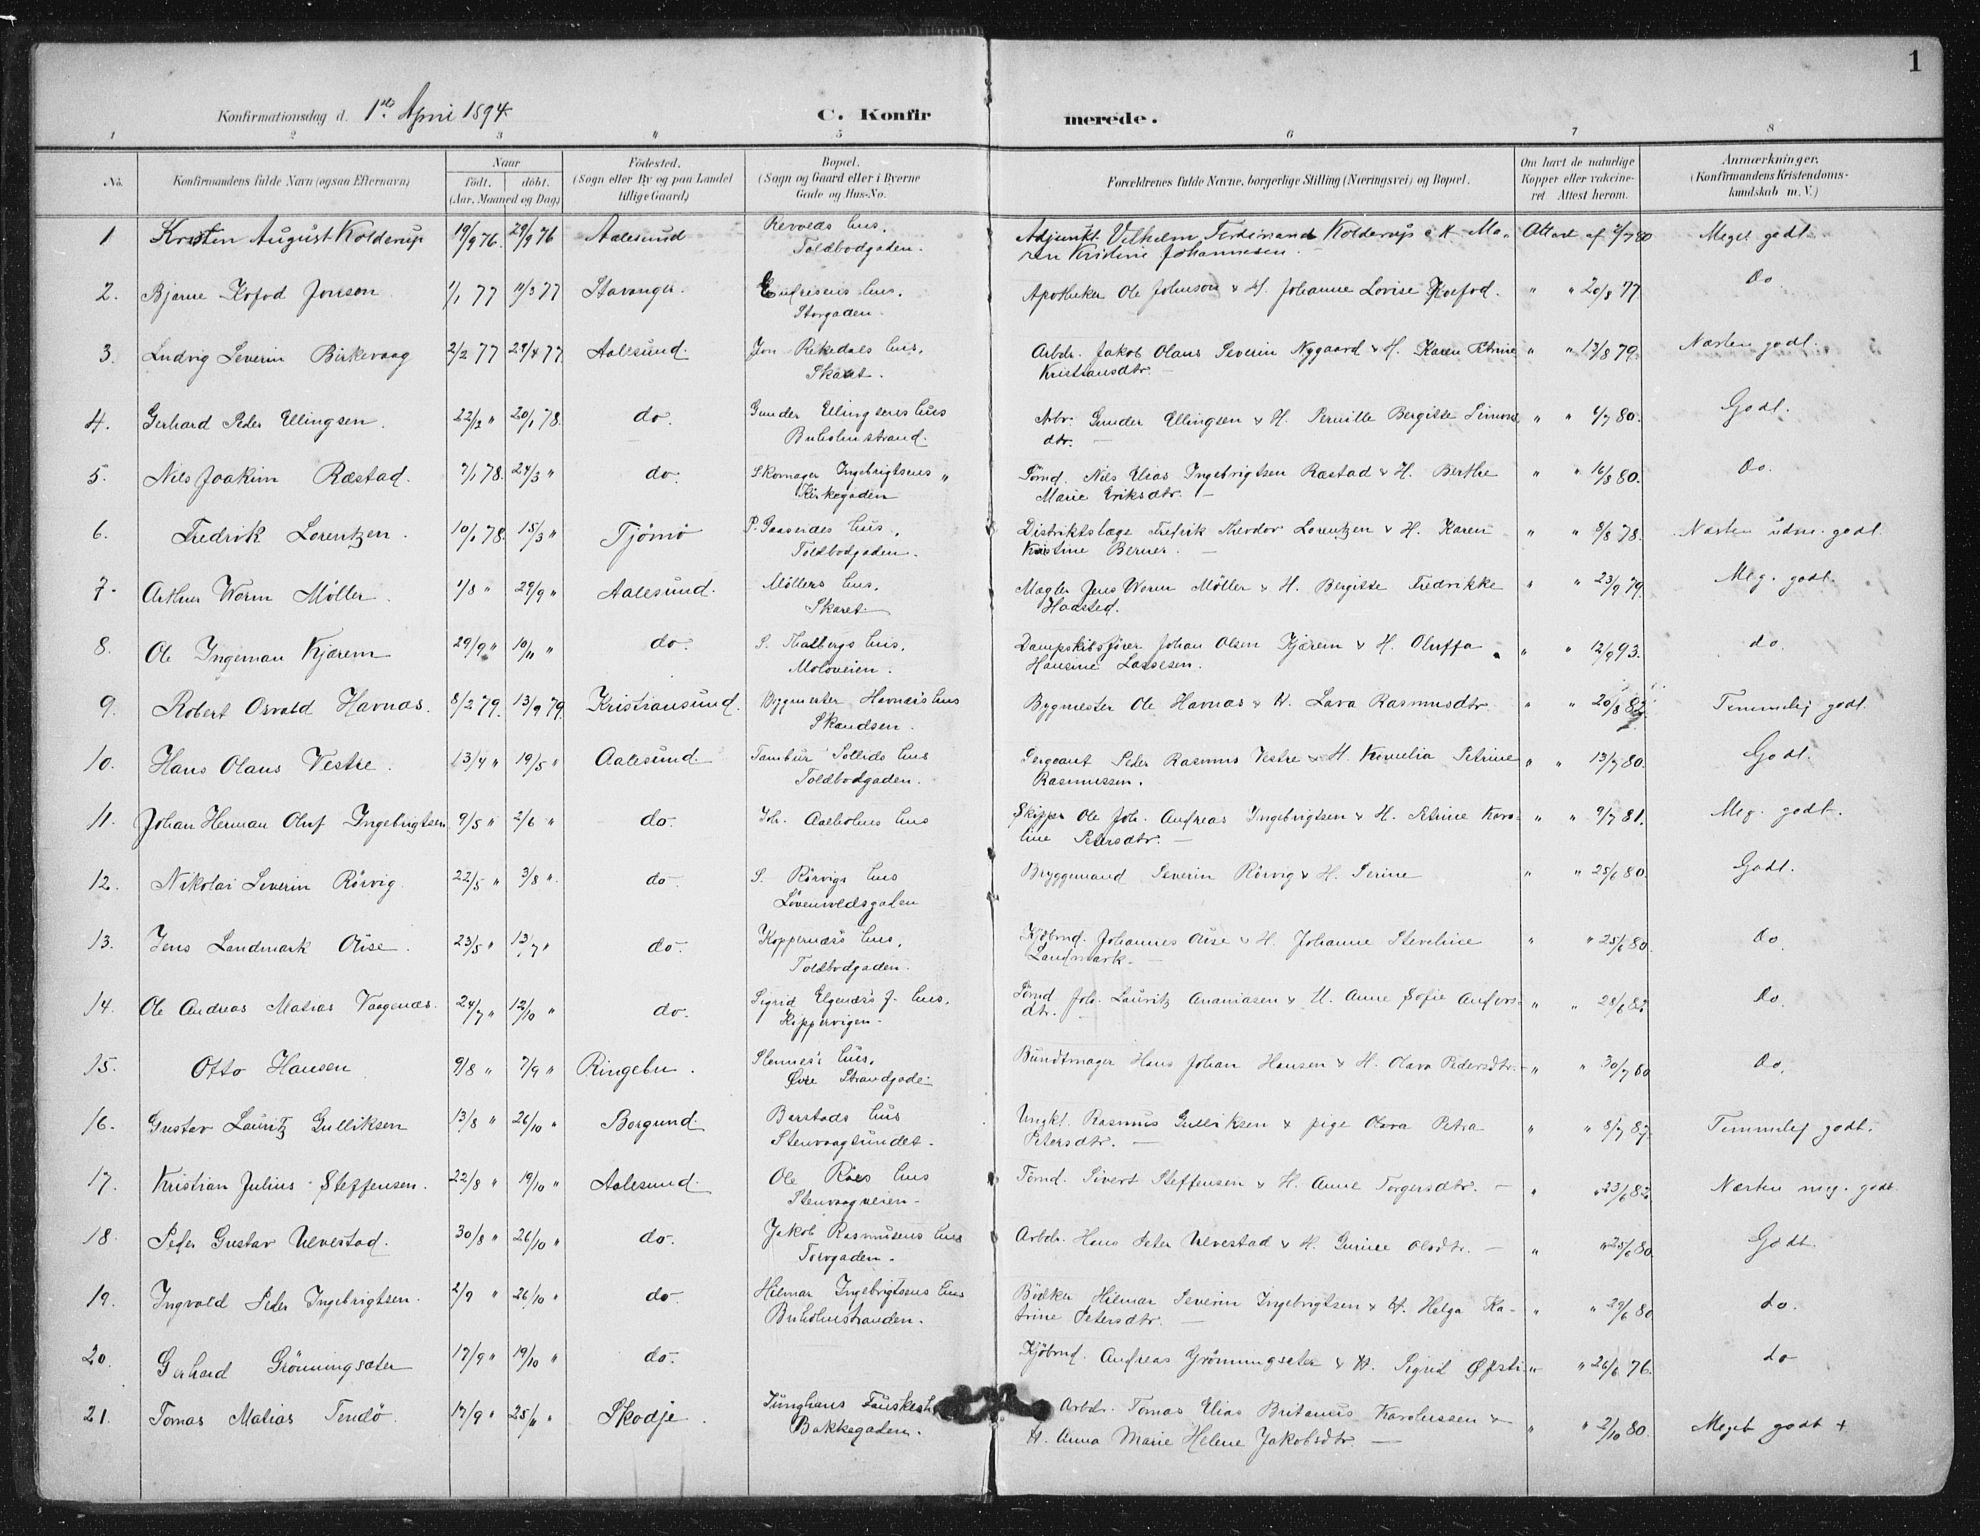 1
Konfirmationsdag d. 1ste April 1894
C. Konfirmerede.
1 2 3 " 5 6 7 8
No. Konfirmandens fulde Navn (ogsaa Efternavn) Naar født. døbt. (Aar, Maaned og Dag) Fødested. (Sogn eller By og paa Landet tillige Gaard) Bopæl. (Sogn og Gaard eller i Byerne Gade og Hus-No. Forældrenes fulde Navne, borgerlige Stilling (Næringsvei) og Bopæl. Om havt de naturlige Kopper eller vaccineret Attest herom. Anmærkninger. (Konfirmandens Kristendomskundskab m. V.)
1 Kristen August Kolderup 19/9 76. 29/9 76 Aalesund Toldbodgaden. Adjunkt Vilhelm Ferdinand Kolderup & H. Maren Kristine Johannesen. Attest af 80 Meget godt.
2. Bjarne Kofod Jonson 1/1 77 11/3 77 Stavanger. Hus, Storgaden. Apotheker Ole Johnson & H. Johanne Lovise Koefod. " " 20/8 77. Do
3. Ludvig Severin Birkevaag 2/2 77 29/4 77 Aalesund. Jon Rekedals Hus, Skaret. Arbdr. Jakob Olaus Severin Nygaard & H. Karen Petrine Kristiansdtr. " " 13/8 79. Næsten godt.
4. Gerhard Peder Ellingsen. 22/12 " 20/1 78. do. Gunder Ellingsens Hus Buholmstrand. Arbr. Gunder Ellingsen & H. Pernille Bergitte Simonsdtr. " " 6/7 80. Godt.
5. Nils Joakim Ræstad. 7/1 78. 24/3 " do. Skomager Ingebrigtsens " Kirkegaden Tømd. Nils Elias Ingebrigtsen Ræstad & H. Berthe Marie Eriksdtr. " " 16/8 80. Do.
6. Fredrik Lorentzen. 10/1 78. 15/3 " Tjømø P. Gaasnæs Hus, Toldbodgaden. Distriktslæge Frederik Theodor Lorentzen & H. Karen Kristine Berner. " " 8/8 78. Næsten udm. godt.
7. Arthur Worm Møller. 1/8 " 29/9 " Aalesund. Møllers Hus, Skaret. Mægler Jens Worm Møller & H. Bergitte Fredrikke Haasted. " " 23/9 79. Meg. godt.
8. Ole Ingeman Kjærem 29/9 " 10/11 " do. S. Thalbergs Hus, Moloveien. Dampskibsfører Johan Olsen Kjærem & H. Oluffa Hansine Lassesen. " " 12/9 93. do.
9. Robert Osvald Havnæs. 8/2 79. 13/9 79. Kristiansund. Bygmester Havnæs's Hus Skandsen. Bygmester Ole Havnæs & H. Lava Rasmusdtr. " " 20/8 82. Temmelig godt.
10. Hans Olaus Vestre. 13/4 " 19/5 " Aalesund. Tambur Sollids Hus Toldbodgaden. Sergeant Peder Rasmus Vestre & H. Kornelia Petrine Rasmussen. " " 13/7 80. Godt.
11. Johan Herman Oluf Ingebrigtsen 9/5 " 2/6 " do. Joh. Aalholms Hus Skipper Ole Joh. Andreas Ingebrigtsen & H. Petrine Karoline Petersdtr. " " 9/7 81. Meg. godt.
12. Nikolai Severin Rørvig. 22/5 " 3/8 ". do. S. Rørvigs Hus Løvenvoldsgaden Bryggemand Severin Rørvig & H. Serine " " 25/6 80. Godt.
13. Jens Landmark Aise. 23/5 " 13/7 " do. Koppernæs's Hus, Toldbodgaden. Kjøbmd. Johannes Aise & H. Johanne Steveline Landmark. " " 25/6 80. Do
14. Ole Andreas Matias Vaagenæs. 24/7 " 12/10 " do. Sigrid Elgenæs's Hus, Kippervigen. Tømd Joh. Lauritz Ananiasen & H. Anne Sofie Andersdtr. " " 28/6 82. Do.
15. Otto Hansen 9/8 " 7/9 " Ringebu. Stennes's Hus, Øvre Strandgade. Bundtmager Hans Johan Hansen & H. Olava Pedersdtr. " " 30/7 80 Do.
16. Gustav Lauritz Gulliksen 13/8 " 26/10 " Borgund. Barstads Hus Stenvaagsundet. Ungkl. Rasmus Gulliksen & pige Olava Petra Petersdtr. " " 8/7 87. Temmelig godt.
17. Kristian Julius Steffensen. 22/8 " 19/10 " Aalesund. Ole Røes Hus Stenvaagveien. Tømd. Sivert Steffensen & H. Anne Torgersdtr. " " 23/6 82. Næsten meg. godt.
18. Peder Gustav Ulvestad. 30/8 " 26/10 " do. Jakob Rasmusens Hus Torvgaden. Arbdr. Hans Peter Ulvestad & H. Gurine Olsdtr. " " 25/6 80 Godt.
19. Ingvald Peder Ingebrigtsen. 2/9 " 26/10 " do. Hilmar Ingebrigtsens Hus Buholmstranden. Bødker Hilmar Severin Ingebrigtsen & H. Helga Katrine Petersdtr. " " 29/6 80 do.
20. Gerhard Grønningsæter 17/9 " 19/10 " do. Kjøbmd. Andreas Grønningsæter & H. Sigrid Øpsti " " 26/6 76. do
21. Tomas Matias Tendø. 17/9 " 25/11 " Skodje. Junghans Bakkegaden. Arbdr. Tomas Elias Britanus Karolussen & H. Anna Marie Helene Jakobsdtr. " " 2/10 80. Meget godt +